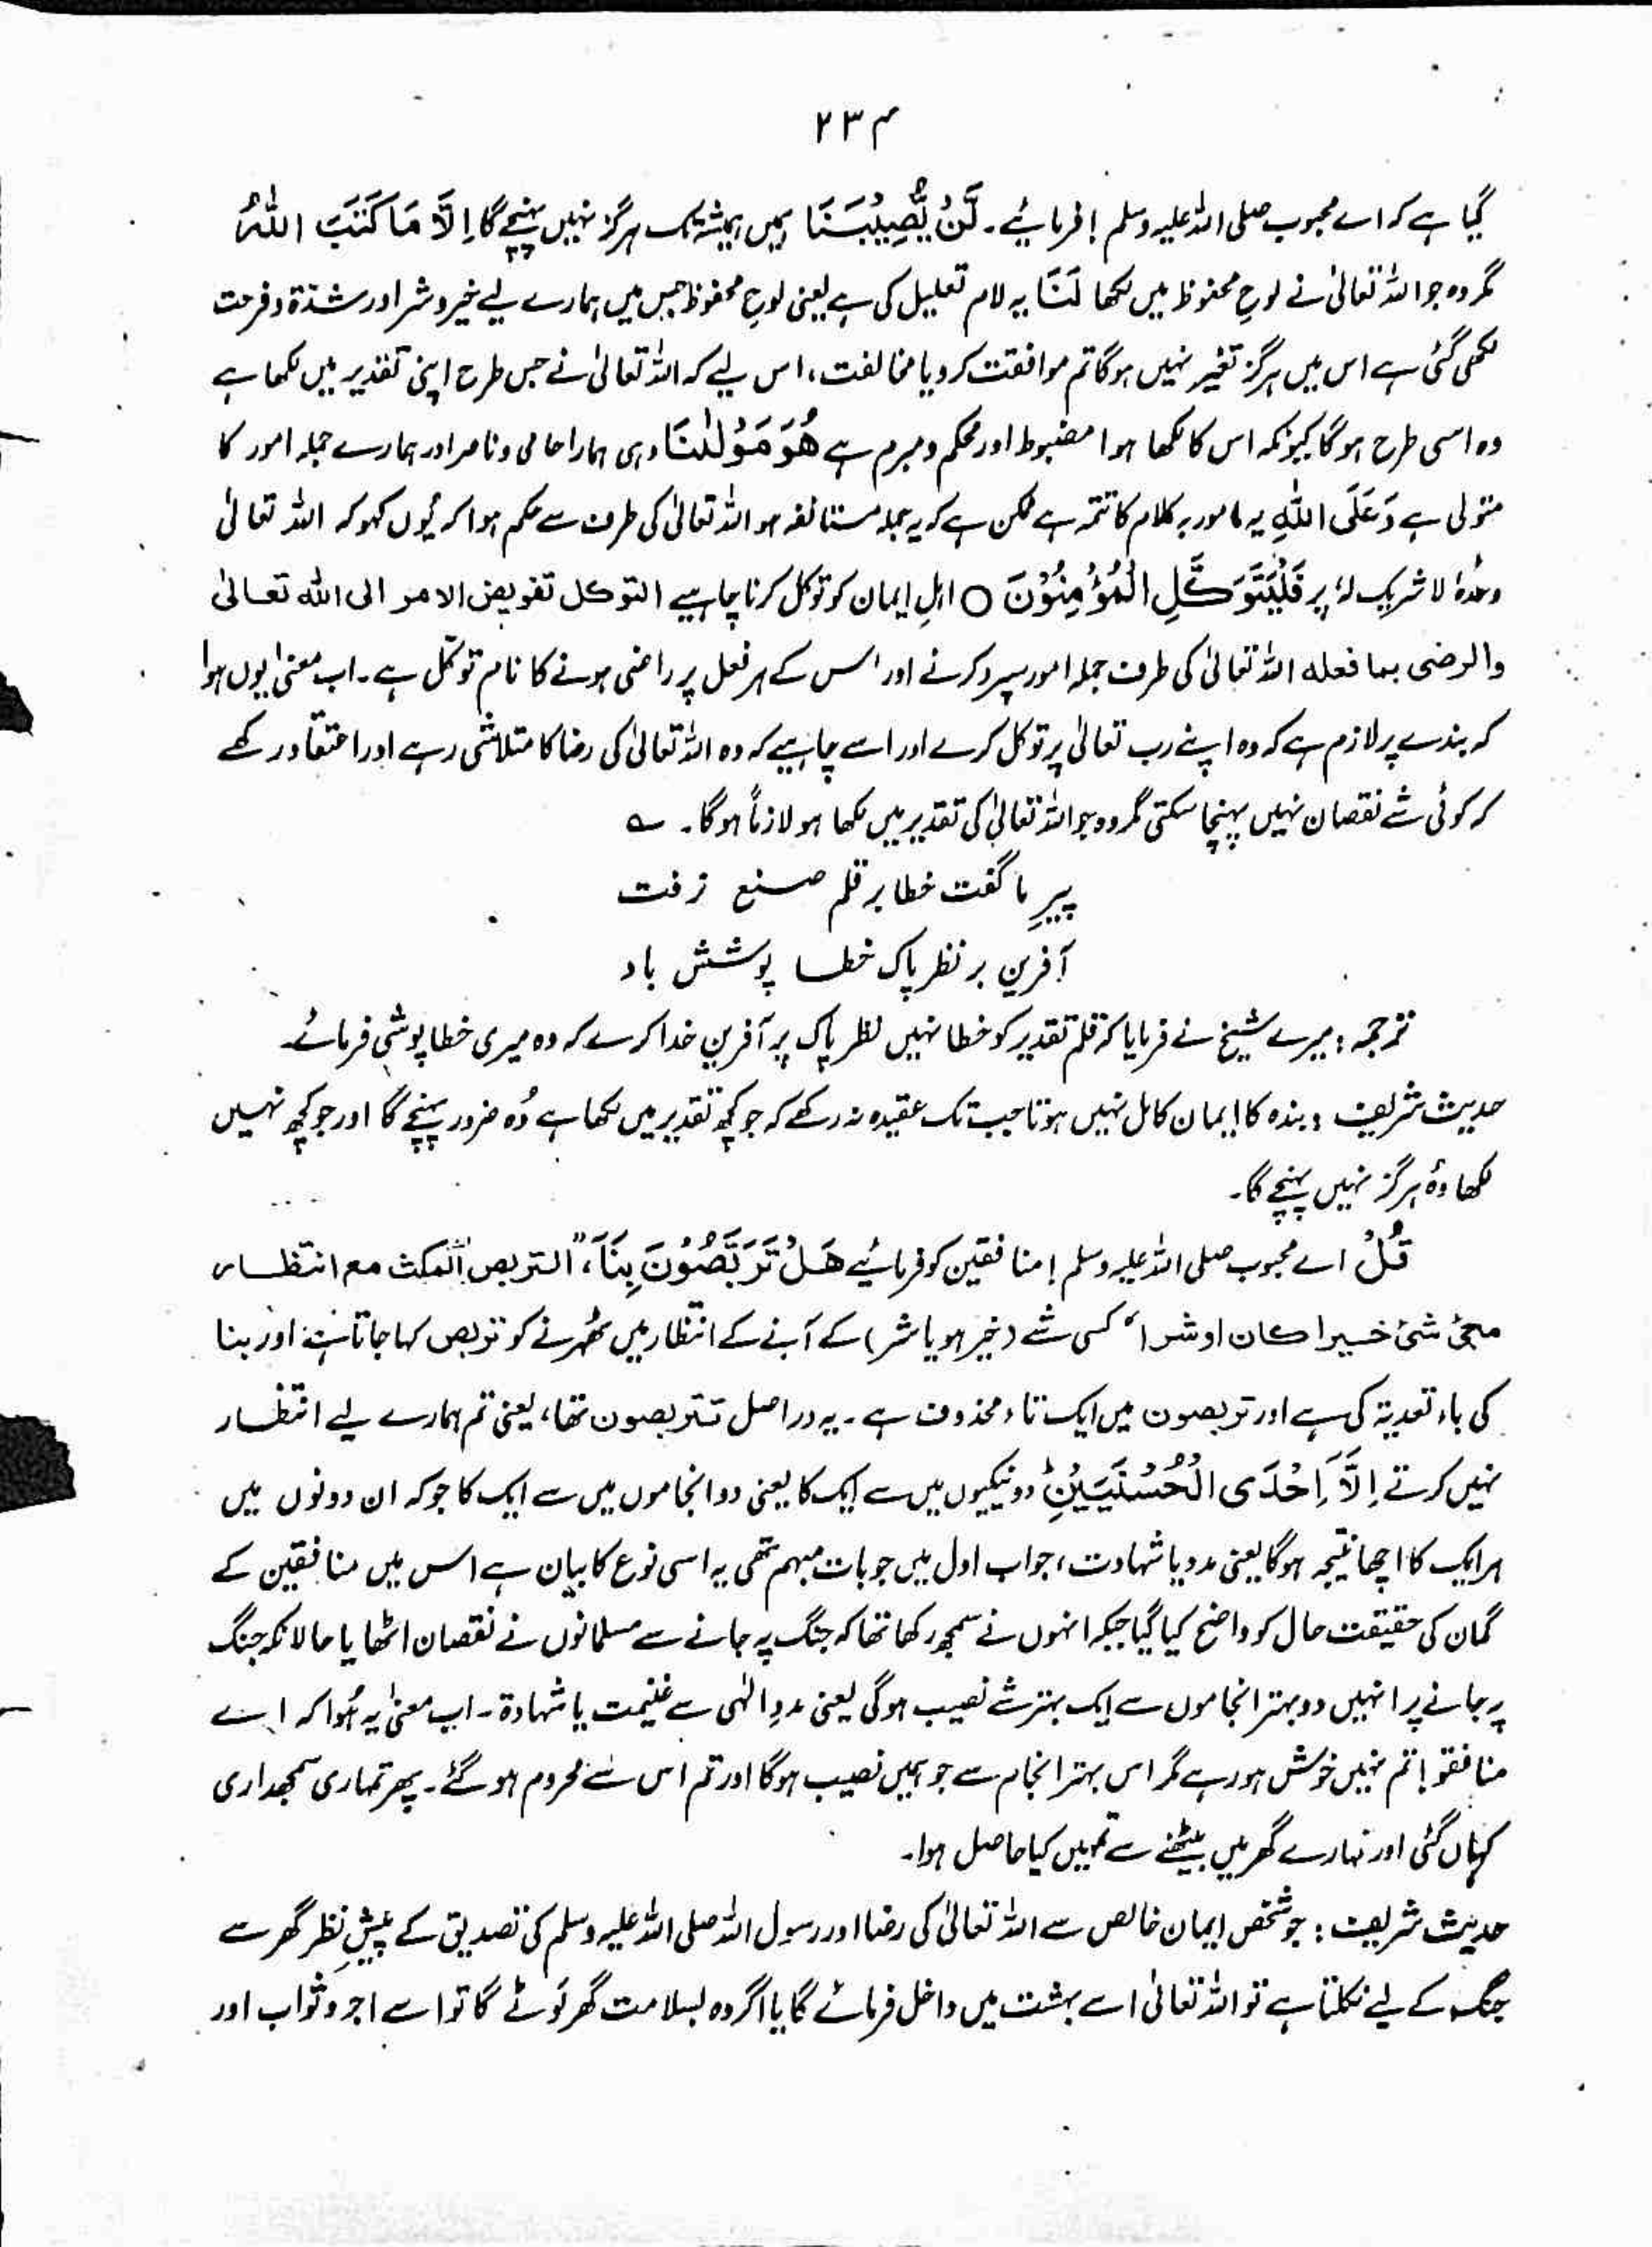 ۲۳۴
گیا ہے کہ اے محبوب صلی اللہ علیہ وسلم ! فرمائیے۔ لَنْ یُّصِیْبَنَا ہمیں ہمیشہ تک ہرگز نہیں پہنچے گا اِلَّا مَا کَتَبَ اللّٰہُ
مگر وہ جو اللہ تعالیٰ نے لوحِ محفوظ میں لکھا لَنَا یہ لام تعلیل کی ہے یعنی لوحِ محفوظ جس میں ہمارے لیے خیر و شر اور شدّۃ و فرحت
لکھی گئی ہے اس میں ہرگز تغیر نہیں ہوگا تم موافقت کرو یا مخالفت، اس لیے کہ اللہ تعالیٰ نے جس طرح اپنی تقدیر میں لکھا ہے
وہ اسی طرح ہوگا کیونکہ اس کا لکھا ہوا مضبوط اور محکم و مبرم ہے ھُوَ مَوْلٰنَا وہی ہمارا حامی و ناصر اور ہمارے جملہ امور کا
متولی ہے وَعَلَی اللّٰہِ یہ مامور بہ کلام کا تتمہ ہے ممکن ہے کہ یہ جملہ مستانفہ ہو اللہ تعالیٰ کی طرف سے حکم ہوا کہ یُوں کہو کہ اللہ تعالیٰ
وحدہٗ لا شریک لہٗ پر فَلْیَتَوَکَّلِ الْمُؤْمِنُوْنَ ○ اہلِ ایمان کو توکل کرنا چاہیے التوکل تفویض الامر الی اللہ تعالیٰ
والرضی بما فعلہ اللہ تعالیٰ کی طرف جملہ امور سپرد کرنے اور اس کے ہر فعل پر راضی ہونے کا نام توکّل ہے۔ اب معنیٰ یوں ہوا
کہ بندے پر لازم ہے کہ وہ اپنے رب تعالیٰ پر توکل کرے اور اسے چاہیے کہ وہ اللہ تعالیٰ کی رضا کا متلاشی رہے اور اعتقاد رکھے
کہ کوئی شے نقصان نہیں پہنچا سکتی مگر وہ جو اللہ تعالیٰ کی تقدیر میں لکھا ہو لازماً ہوگا۔ ؎
پیرِ ما گفت خطا بر قلم صنع نرفت
آفرین بر نظر پاک خطا پوشش باد
ترجمہ : میرے شیخ نے فرمایا کہ قلم تقدیر کو خطا نہیں نظر پاک پر آفرین خدا کرے کہ وہ میری خطا پوشی فرمائے۔
حدیث شریف : بندہ کا ایمان کامل نہیں ہوتا جب تک عقیدہ نہ رکھے کہ جو کچھ تقدیر میں لکھا ہے وُہ ضرور پہنچے گا اور جو کچھ نہیں
لکھا وہُ ہرگز نہیں پہنچے گا۔
قُلْ اے محبوب صلی اللہ علیہ وسلم ! منافقین کو فرمائیے ھَلْ تَرَبَّصُوْنَ بِنَآ، "التربص المکث مع انتظار
مجئ شئ خیرا کان او شرا" کسی شے (خیر ہو یا شر) کے آنے کے انتظار میں ٹھہرنے کو تربص کہا جاتا ہے اور بنا
کی باء تعدیۃ کی ہے اور تربصون میں ایک تاء محذوف ہے۔ یہ دراصل تتربصون تھا، یعنی تم ہمارے لیے انتظار
نہیں کرتے اِلَّآ اِحْدَی الْحُسْنَیَیْنِؕ دو نیکیوں میں سے ایک کا یعنی دو انجاموں میں سے ایک کا جو کہ ان دونوں میں
ہر ایک کا اچھا نتیجہ ہوگا یعنی مدد یا شہادت، جواب اول میں جو بات مبہم تھی یہ اسی نوع کا بیان ہے اس میں منافقین کے
گمان کی حقیقت حال کو واضح کیا گیا جبکہ انہوں نے سمجھ رکھا تھا کہ جنگ پہ جانے سے مسلمانوں نے نقصان اٹھایا حالانکہ جنگ
پہ جانے پر انہیں دو بہتر انجاموں سے ایک بہتر شے نصیب ہوگی یعنی مددِ الٰہی سے غنیمت یا شہادۃ۔ اب معنیٰ یہ ہُوا کہ اے
منافقو! تم نہیں خوش ہو رہے مگر اس بہتر انجام سے جو ہمیں نصیب ہوگا اور تم اس سے محروم ہو گئے۔ پھر تمہاری سمجھداری
کہاں گئی اور تمہارے گھر میں بیٹھنے سے تمہیں کیا حاصل ہوا۔
حدیث شریف : جو شخص ایمان خالص سے اللہ تعالیٰ کی رضا اور رسول اللہ صلی اللہ علیہ وسلم کی تصدیق کے پیشِ نظر گھر سے
جنگ کے لیے نکلتا ہے تو اللہ تعالیٰ اسے بہشت میں داخل فرمائے گا یا اگر وہ بسلامت گھر لَوٹے گا تو اسے اجر و ثواب اور